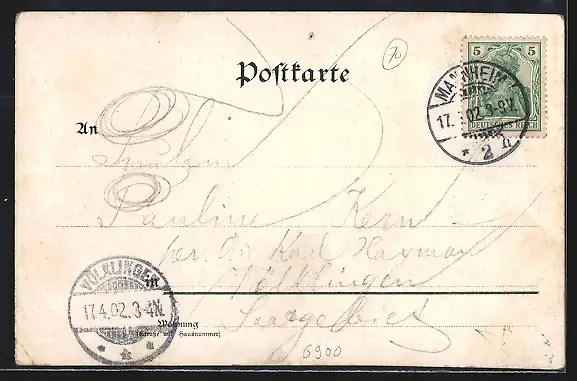 70
Postkarte
5 5
DEUTSCHES REICH
MANNHEIM
17. .02. 8-9V.
* 2 h
An
Fräulein
Pauline Kern
per. Adr. Karl Hayman
Völklingen
in
Saargebiet
Wohnung
(Straße und Hausnummer)
VÖLKLINGEN
17.4.02.3-4N.
6900